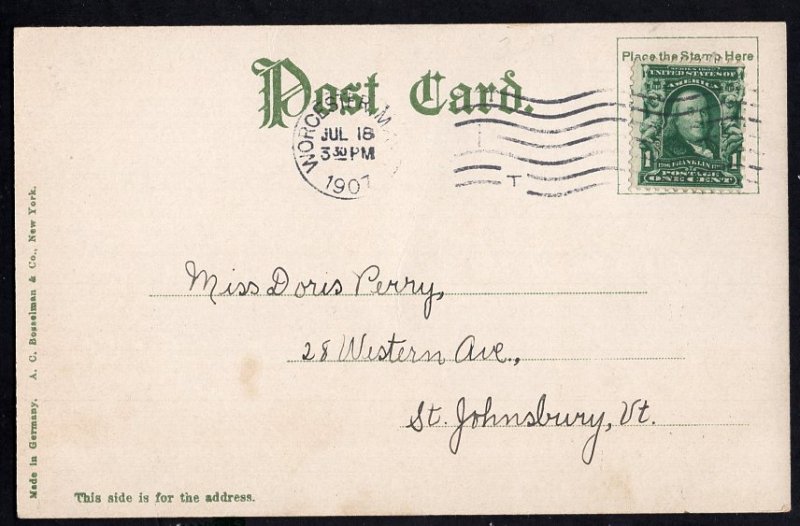 Post Card.
Place the Stamp Here
SERIES 1902
UNITED STATES OF
AMERICA
FRANKLIN
1 1
POSTAGE
ONE CENT
WORCESTER, MA
JUL 18
3 30 PM
1907
T
Miss Doris Perry,
28 Western Ave.,
St. Johnsbury, Vt.
Made in Germany. A. C. Bosselman & Co., New York.
This side is for the address.